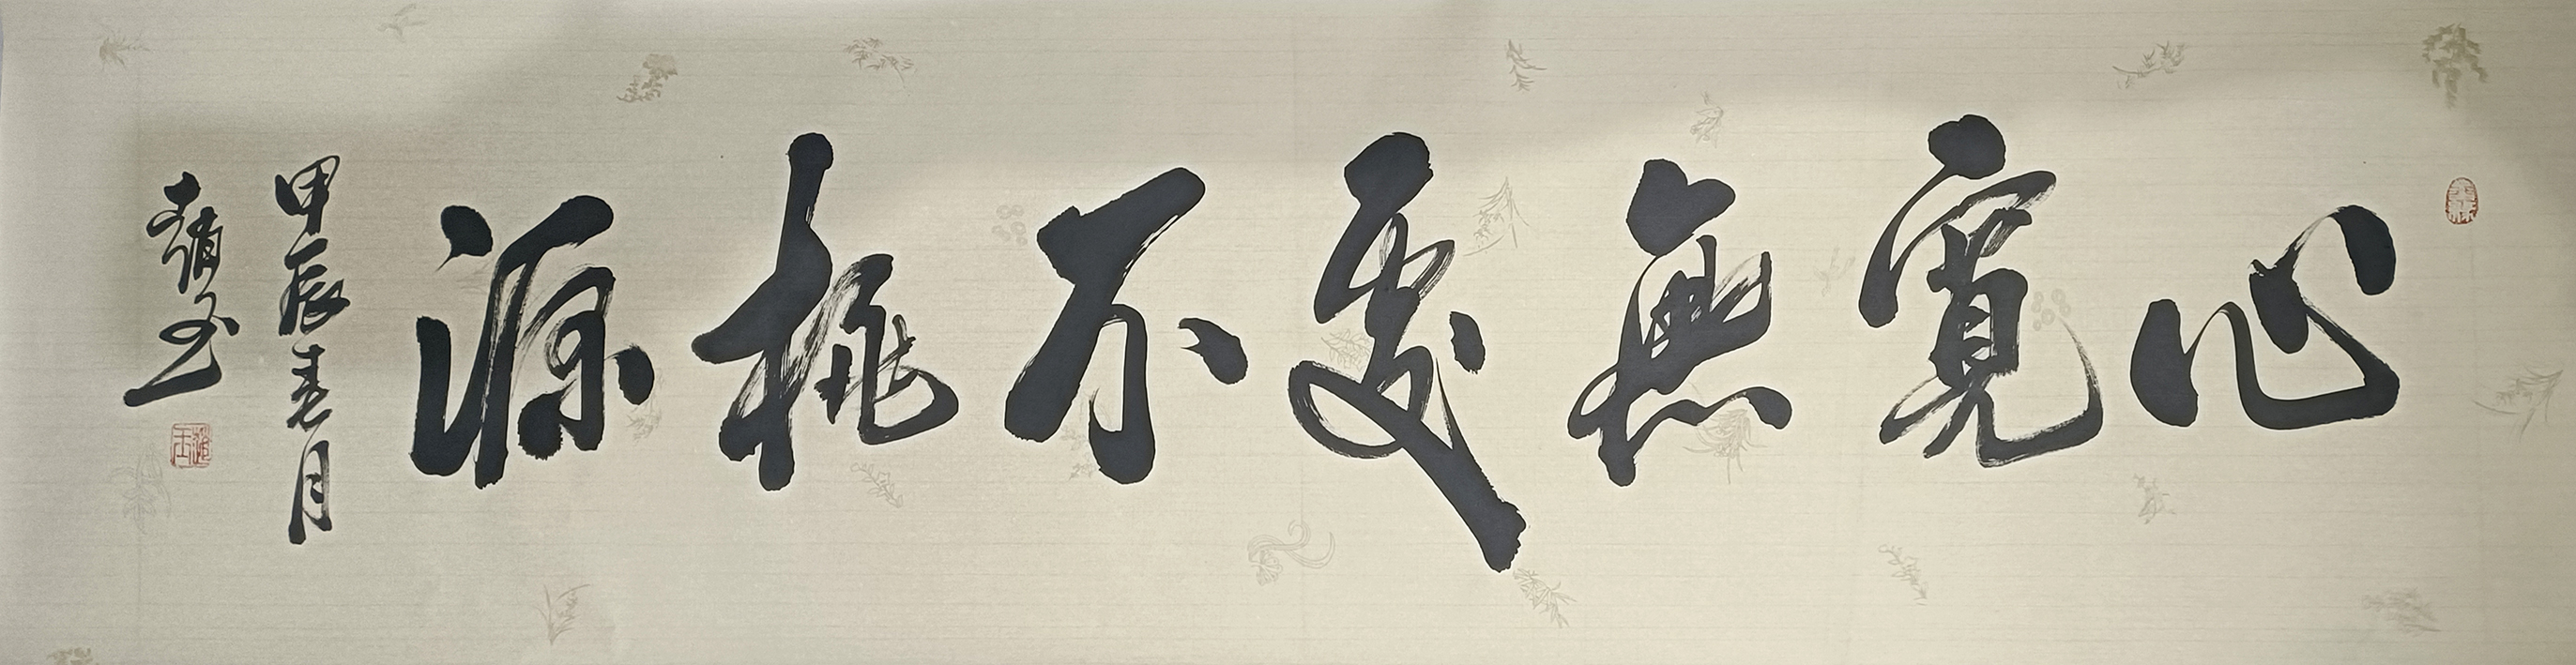 心寬無處不桃源
甲辰春月